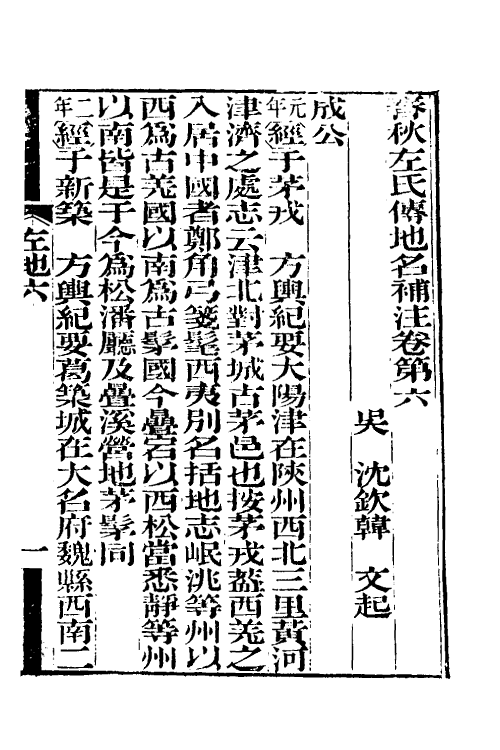 春秋左氏傳地名補注卷第六
吳 沈欽韓 文起
成公
元年經于茅戎 方輿紀要大陽津在陝州西北三里黃河
津濟之處志云津北對茅城古茅邑也按茅戎蓋西羌之
入居中國者鄭角弓箋髦西夷別名括地志岷洮等州以
西爲古羌國以南爲古髳國今疊宕以西松當悉靜等州
以南皆是于今爲松潘廳及疊溪營地茅髳同
二年經于新築 方輿紀要葛築城在大名府魏縣西南二
左地六
一